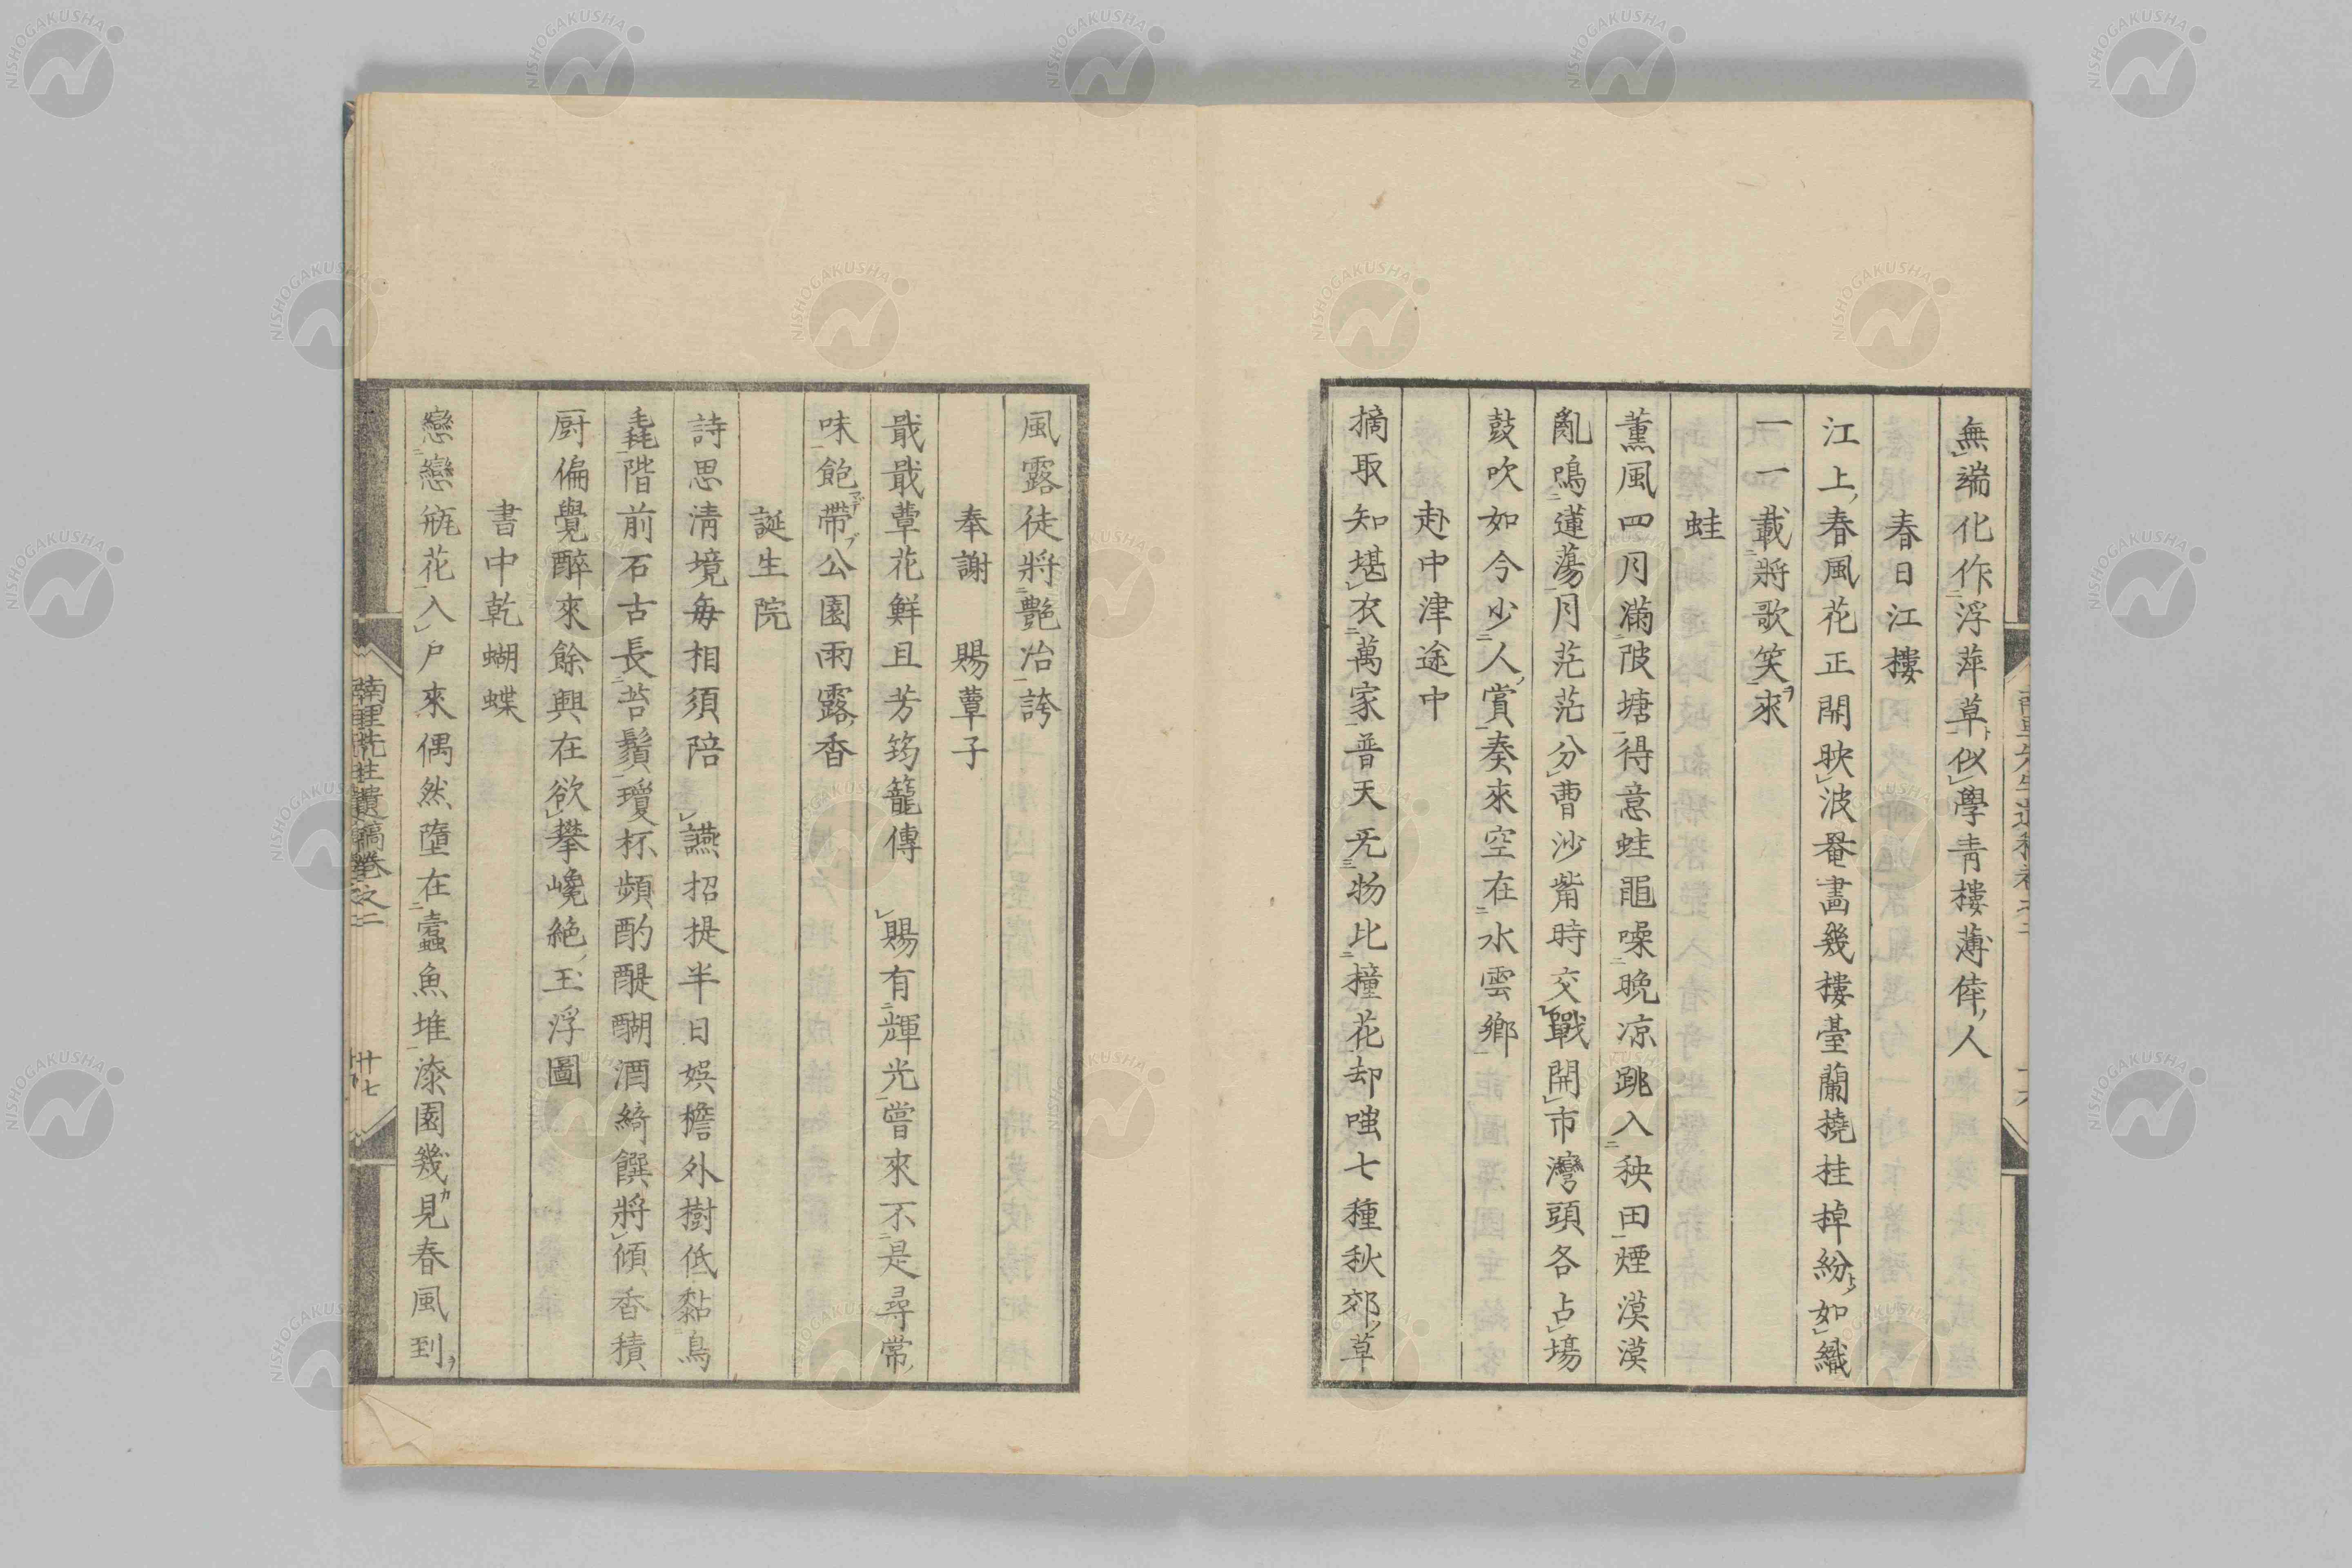 無端化作浮萍草似學青樓薄倖人
春日江樓
江上春風花正開映波罨畫幾樓臺蘭撓桂掉紛如織
一一載將歌笑來
蛙
薰風四月滿陂塘得意蛙黽噪晩凉跳入秧田煙漠漠
亂鳴蓮蕩月茫茫分曹沙觜時交戰開市灣頭各占場
鼓吹如今少人賞奏來空在水雲鄉
赴中津途中
摘取知堪衣萬家普天旡物比橦花却嗤七種秋郊草
風露徒將艷冶誇
奉謝　賜蕈子
戢戢蕈花鮮且芳筠籠傳　賜有輝光嘗來不是尋常
味飽帶公園雨露香
誕生院
詩思清境每相須陪　讌招提半日娛檐外樹低黏鳥
毳階前石古長苔鬚瓊杯頻酌醍醐酒綺饌將傾香積
厨偏覺醉來餘興在欲攀巉絶玉浮圖
書中乾蝴蝶
戀戀瓶花入戶來偶然墮在蠹魚堆漆園幾見春風到
南里先生遺稿卷之二
十七
NISHOGAKUSHA